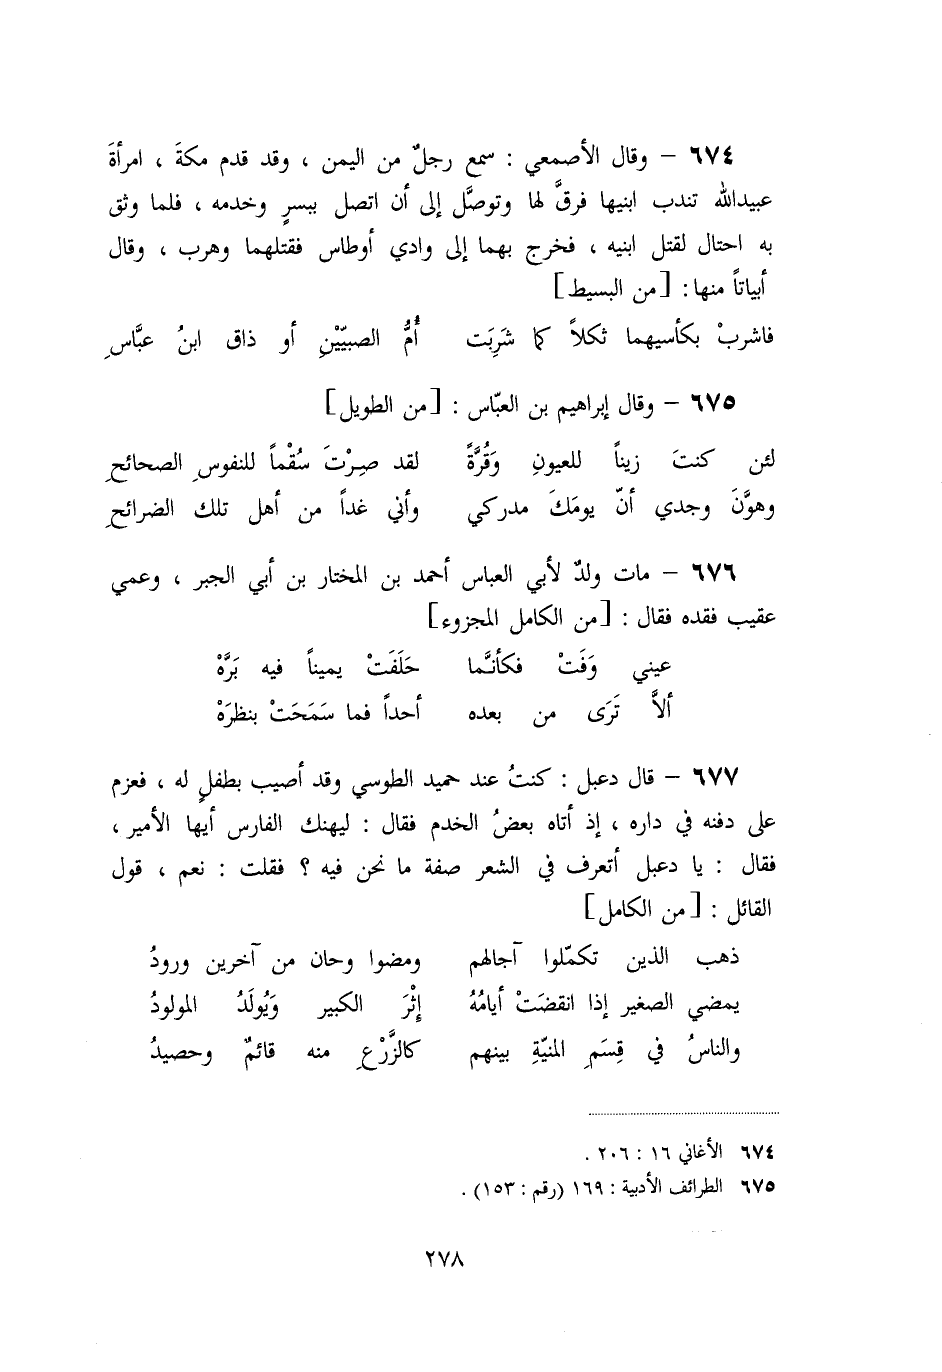 ٦٧٤ – وقال الأصمعي : سمع رجلٌ من اليمن ، وقد قدم مكةَ ، امرأةَ
عبيدالله تندب ابنيها فرقَّ لها وتوصَّل إلى أن اتصل ببسرٍ وخدمه ، فلما وثق
به احتال لقتل ابنيه ، فخرج بهما إلى وادي أوطاس فقتلهما وهرب ، وقال
أبياتاً منها : [من البسيط]
فاشربْ بكأسيهما ثكلاً كما شَرِبَت أُمُّ الصبيّيْنِ أو ذاق ابنُ عبَّاسِ
٦٧٥ – وقال إبراهيم بن العبّاس : [من الطويل]
لئن كنتَ زيناً للعيونِ وَقُرَّةً لقد صِرْتَ سُقْماً للنفوسِ الصحائحِ
وهوَّنَ وجدي أنّ يومَكَ مدركي وأني غداً من أهل تلك الضرائحِ
٦٧٦ – مات ولدٌ لأبي العباس أحمد بن المختار بن أبي الجبر ، وعمي
عقيب فقده فقال : [من الكامل المجزوء]
عيني وَفَتْ فكأنَّما حَلَفَتْ يميناً فيه بَرَّهْ
ألاَّ تَرَى من بعده أحداً فما سَمَحَتْ بنظرَهْ
٦٧٧ – قال دعبل : كنتُ عند حميد الطوسي وقد أصيب بطفلٍ له ، فعزم
على دفنه في داره ، إذ أتاه بعضُ الخدم فقال : ليهنك الفارس أيها الأمير ،
فقال : يا دعبل أتعرف في الشعر صفة ما نحن فيه ؟ فقلت : نعم ، قول
القائل : [من الكامل]
ذهب الذين تكمّلوا آجالهم ومضوا وحان من آخرين ورودُ
يمضي الصغير إذا انقضَتْ أيامُهُ إِثْرَ الكبير وَيُولَدُ المولودُ
والناسُ في قِسَمِ المنيّةِ بينهم كالزَّرْعِ منه قائمٌ وحصيدُ
٦٧٤ الأغاني ١٦ : ٢٠٦ .
٦٧٥ الطرائف الأدبية : ١٦٩ (رقم : ١٥٣) .
٢٧٨